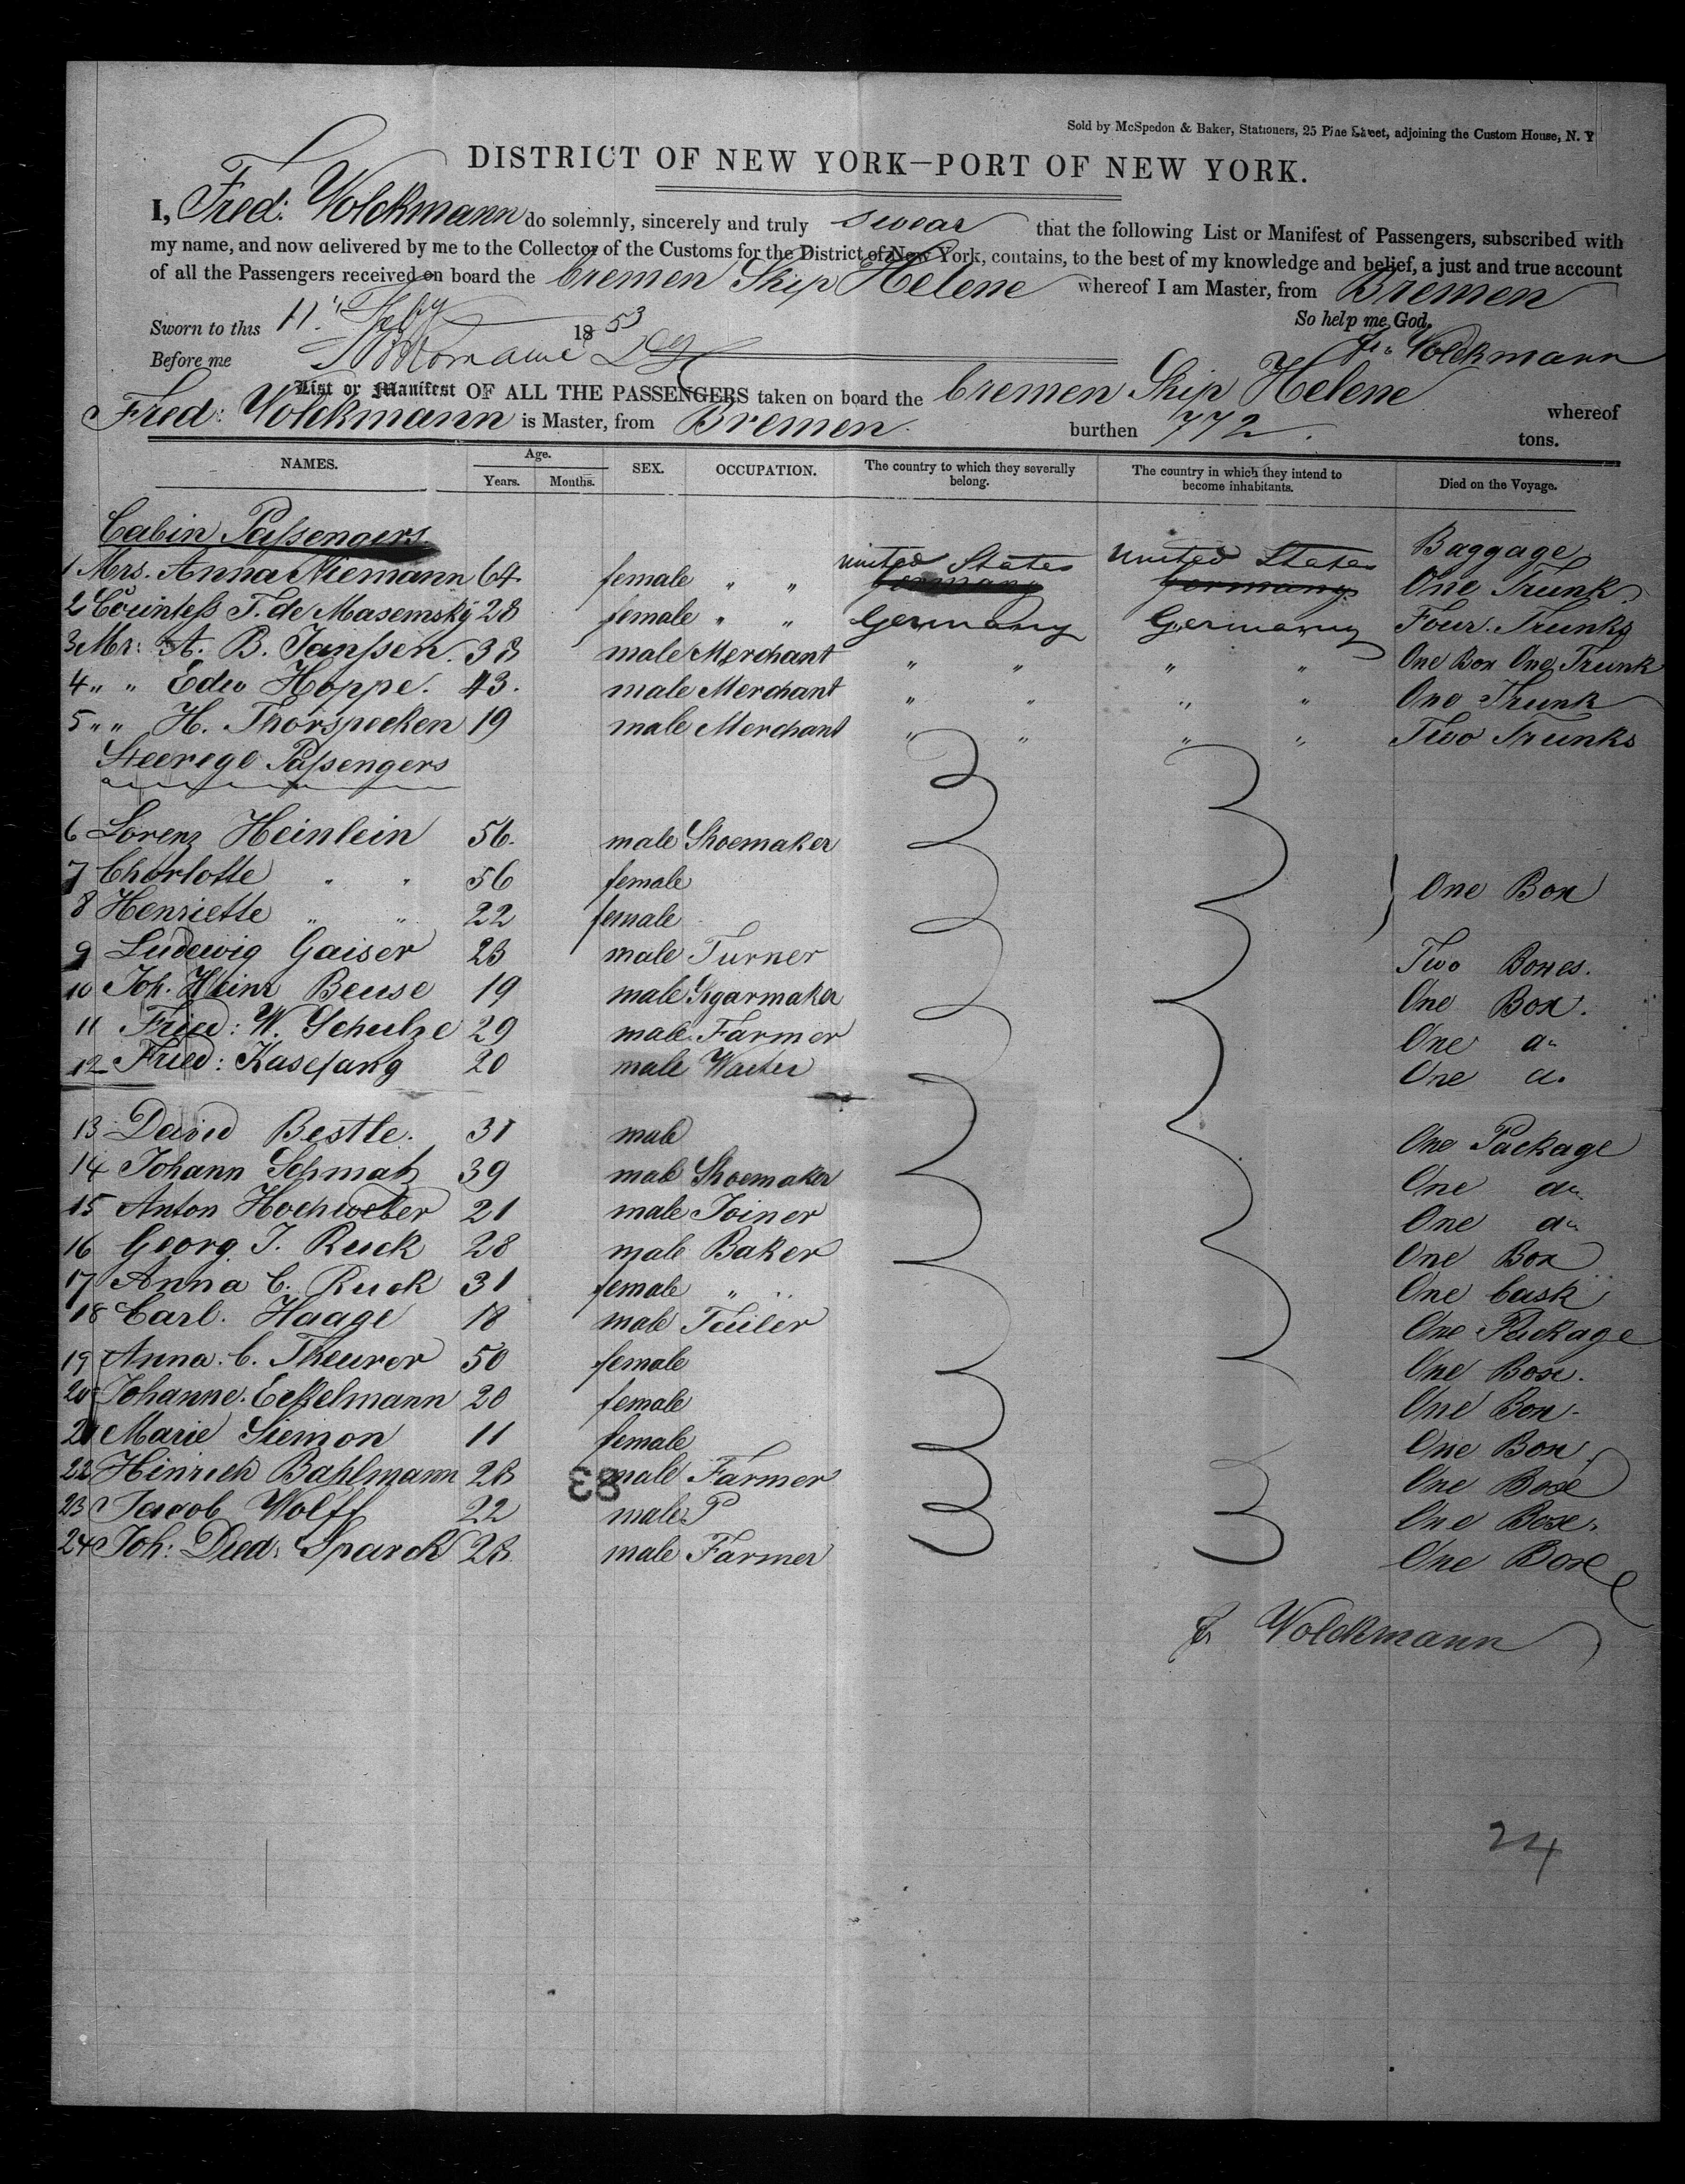 Sold by McSpedon & Baker, Stationers, 25 Pine Street, adjoining the Custom House, N. Y
DISTRICT OF NEW YORK—PORT OF NEW YORK.
I, Fred: Volckmann do solemnly, sincerely and truly swear that the following List or Manifest of Passengers, subscribed with
my name, and now delivered by me to the Collector of the Customs for the District of New York, contains, to the best of my knowledge and belief, a just and true account
of all the Passengers received on board the bremen Ship Helene whereof I am Master, from Bremen
So help me God.
Sworn to this 11" Feby 1853
Fr. Volckmann
Before me
List or Manifest OF ALL THE PASSENGERS taken on board the bremen Ship Helene whereof
Fred: Volckmann is Master, from Bremen. burthen 772. tons.
NAMES. Age. Years. Months. SEX. OCCUPATION. The country to which they severally belong. The country in which they intend to become inhabitants. Died on the Voyage.
Cabin Passengers. Baggage
1 Mrs. Anna Niemann 64 female " " United States Germany United States Germany One Trunk
2 Countess T. de Masemsky 28 female " " Germany Germany Four Trunks
3 Mr: A. B. Janssen. 38 male Merchant " " " " One Box One Trunk
4 " " Edw Hoppe. 43. male Merchant " " " " One Trunk
5 " " H. Thorspecken 19 male Merchant " " " " Two Trunks
Steerege Passengers
6 Lorenz Heinlein 56. male Shoemaker
7 Charlotte " " 56 female One Box
8 Henriette " " 22 female
9 Ludewig Gaiser 23 male Turner Two Boxes.
10 Joh. Heinr Beuse 19 male Sigarmaker One Box.
11 Fried: W. Schulze 29 male Farmer One do
12 Fried: Kasefang 20 male Waiter One do
13 David Bestle. 31 male One Package
14 Johann Schmatz 39 male Shoemaker One do
15 Anton Hochweber 21 male Joiner One do
16 Georg J. Ruck 28 male Baker One Box
17 Anna C. Ruck 31 female " " One Cask
18 Carl. Haage 18 male Tailer One Package
19 Anna. C. Theurer 50 female One Box.
20 Johanne. Eckelmann 20 female One Box-
21 Marie Siemon 11 female One Box
22 Hinrich Bahlmann 23 male Farmer One Box
83
23 Jacob Wolff 22 male P One Box.
24 Joh: Died: Sparck 23 male Farmer One Box
Fr Volckmann
24